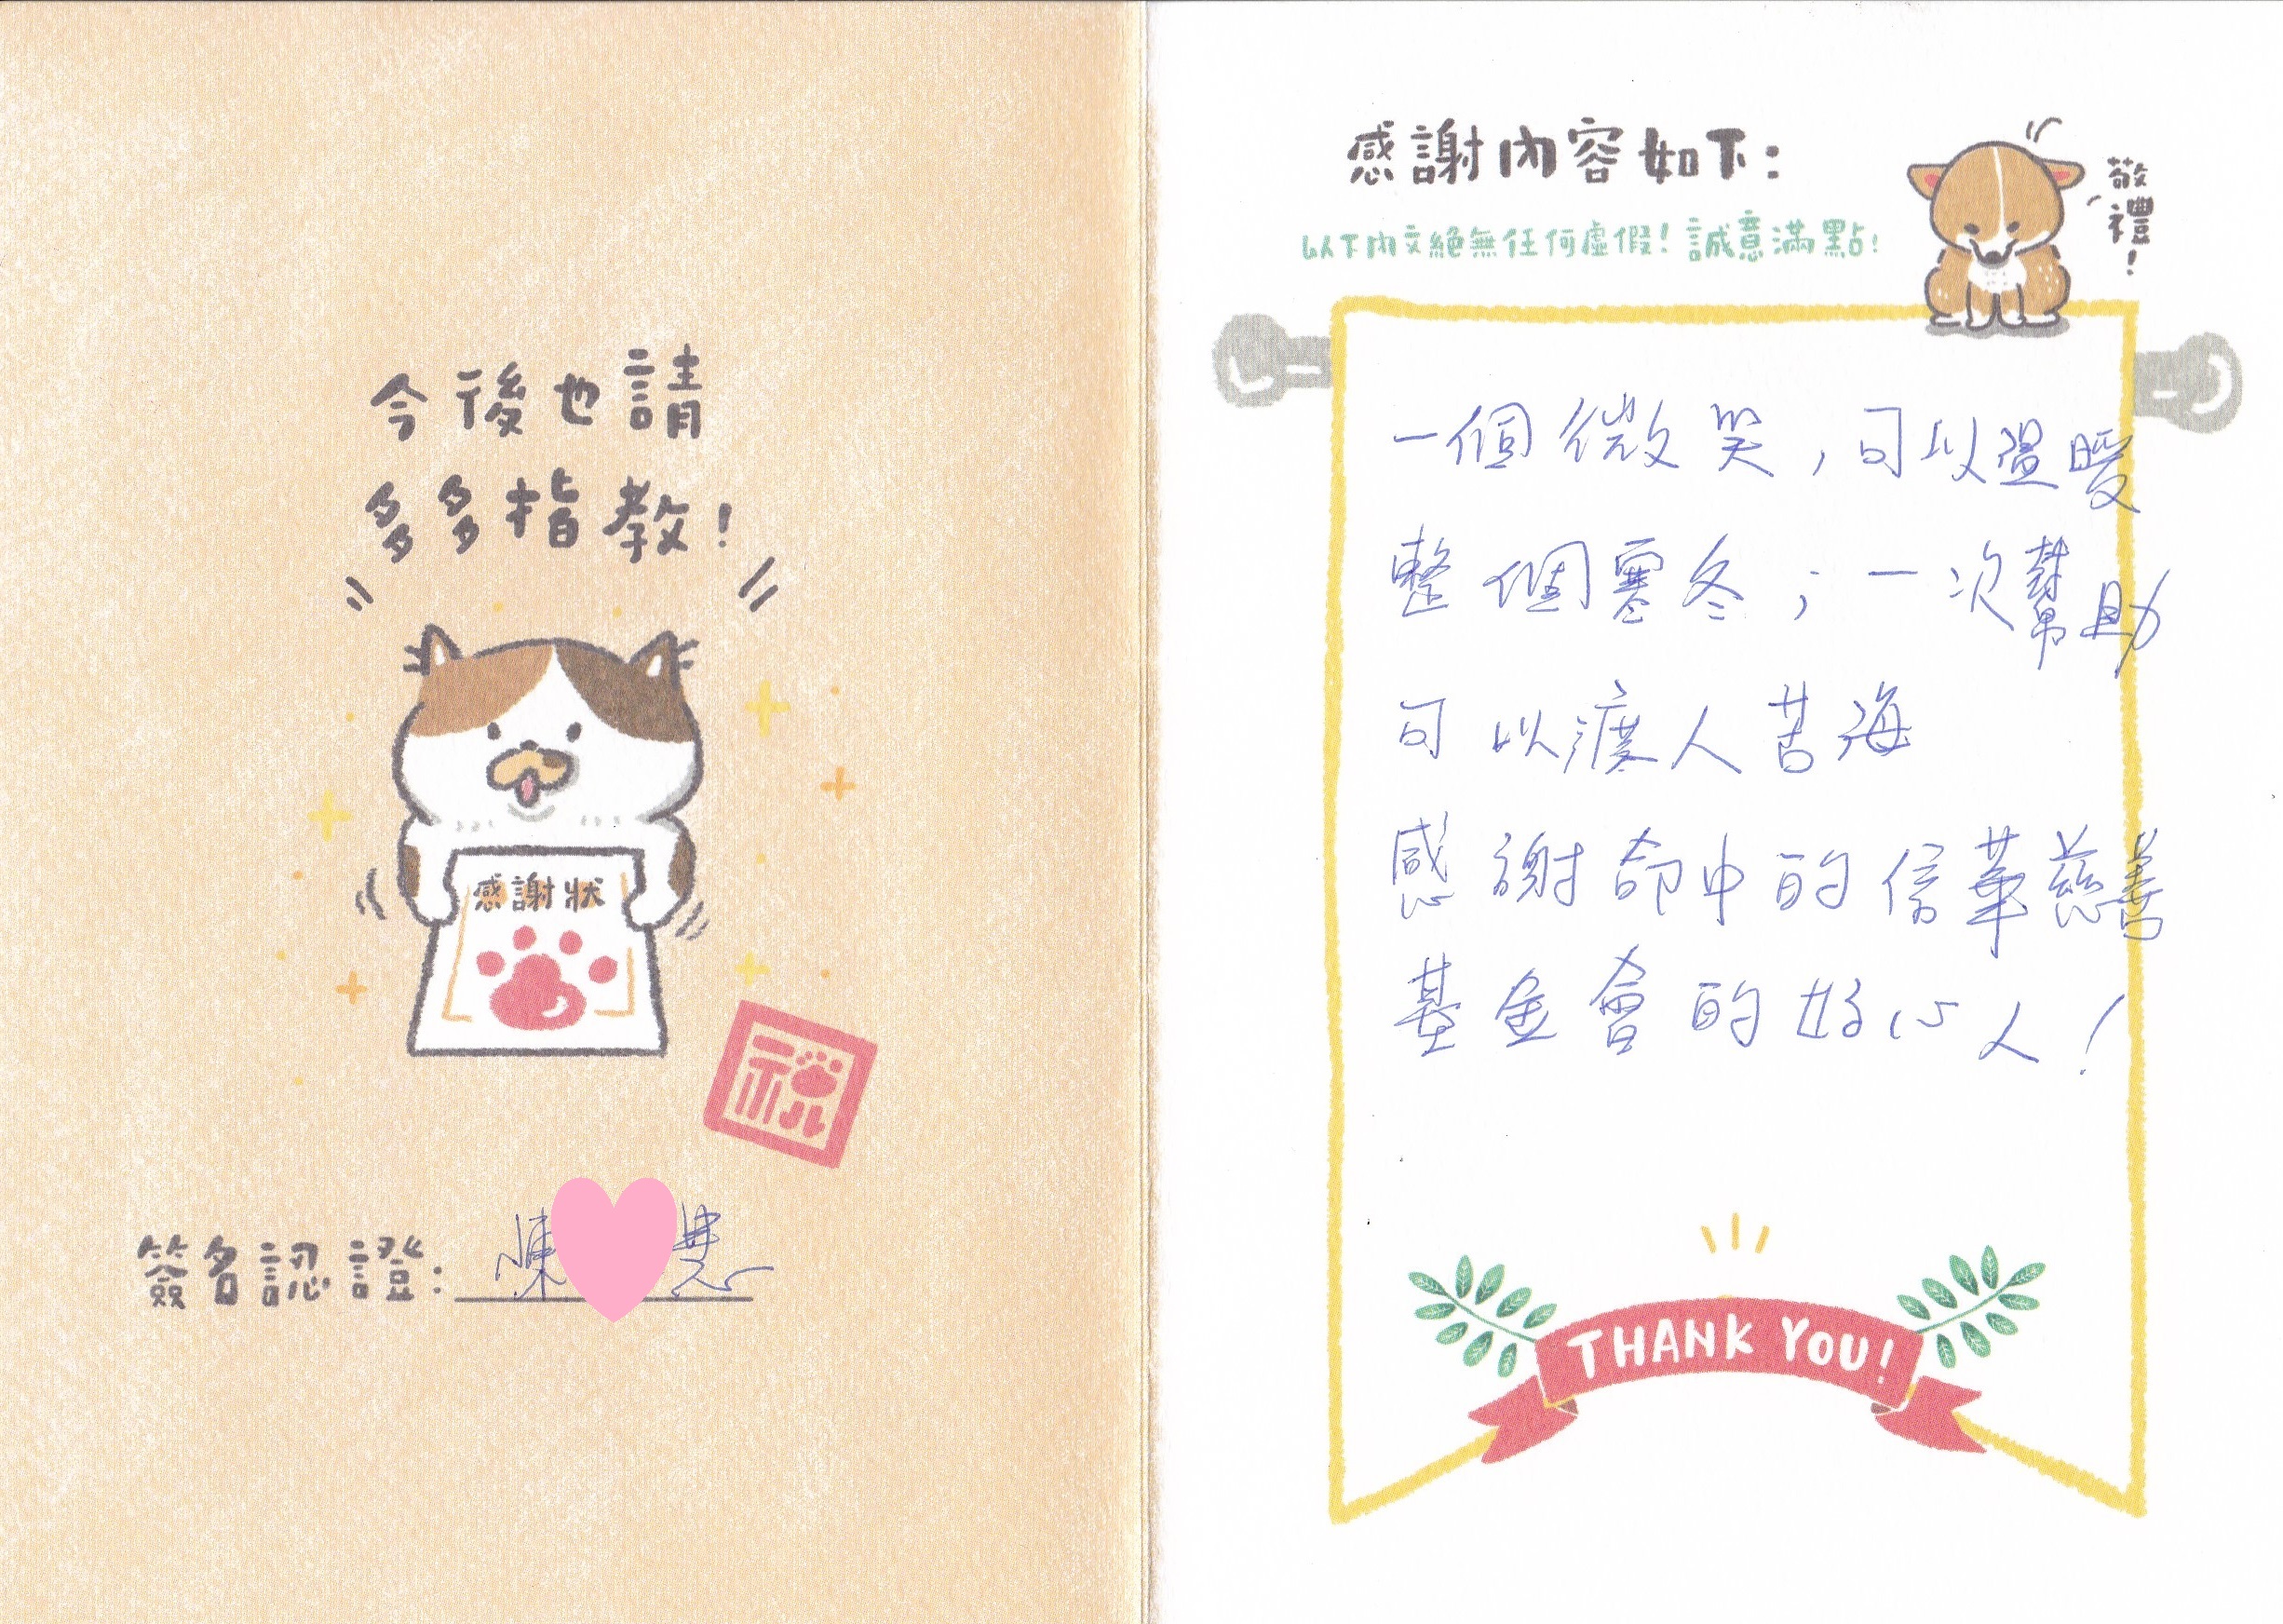 今後也請
多多指教!
感謝狀
福
簽名認證:陳 慧
感謝內容如下:
以下內文絕無任何虛假!誠意滿點!
敬禮!
一個微笑,可以溫暖
整個寒冬;一次幫助
可以渡人苦海
感謝命中的信華慈善
基金會的好心人!
THANK YOU!